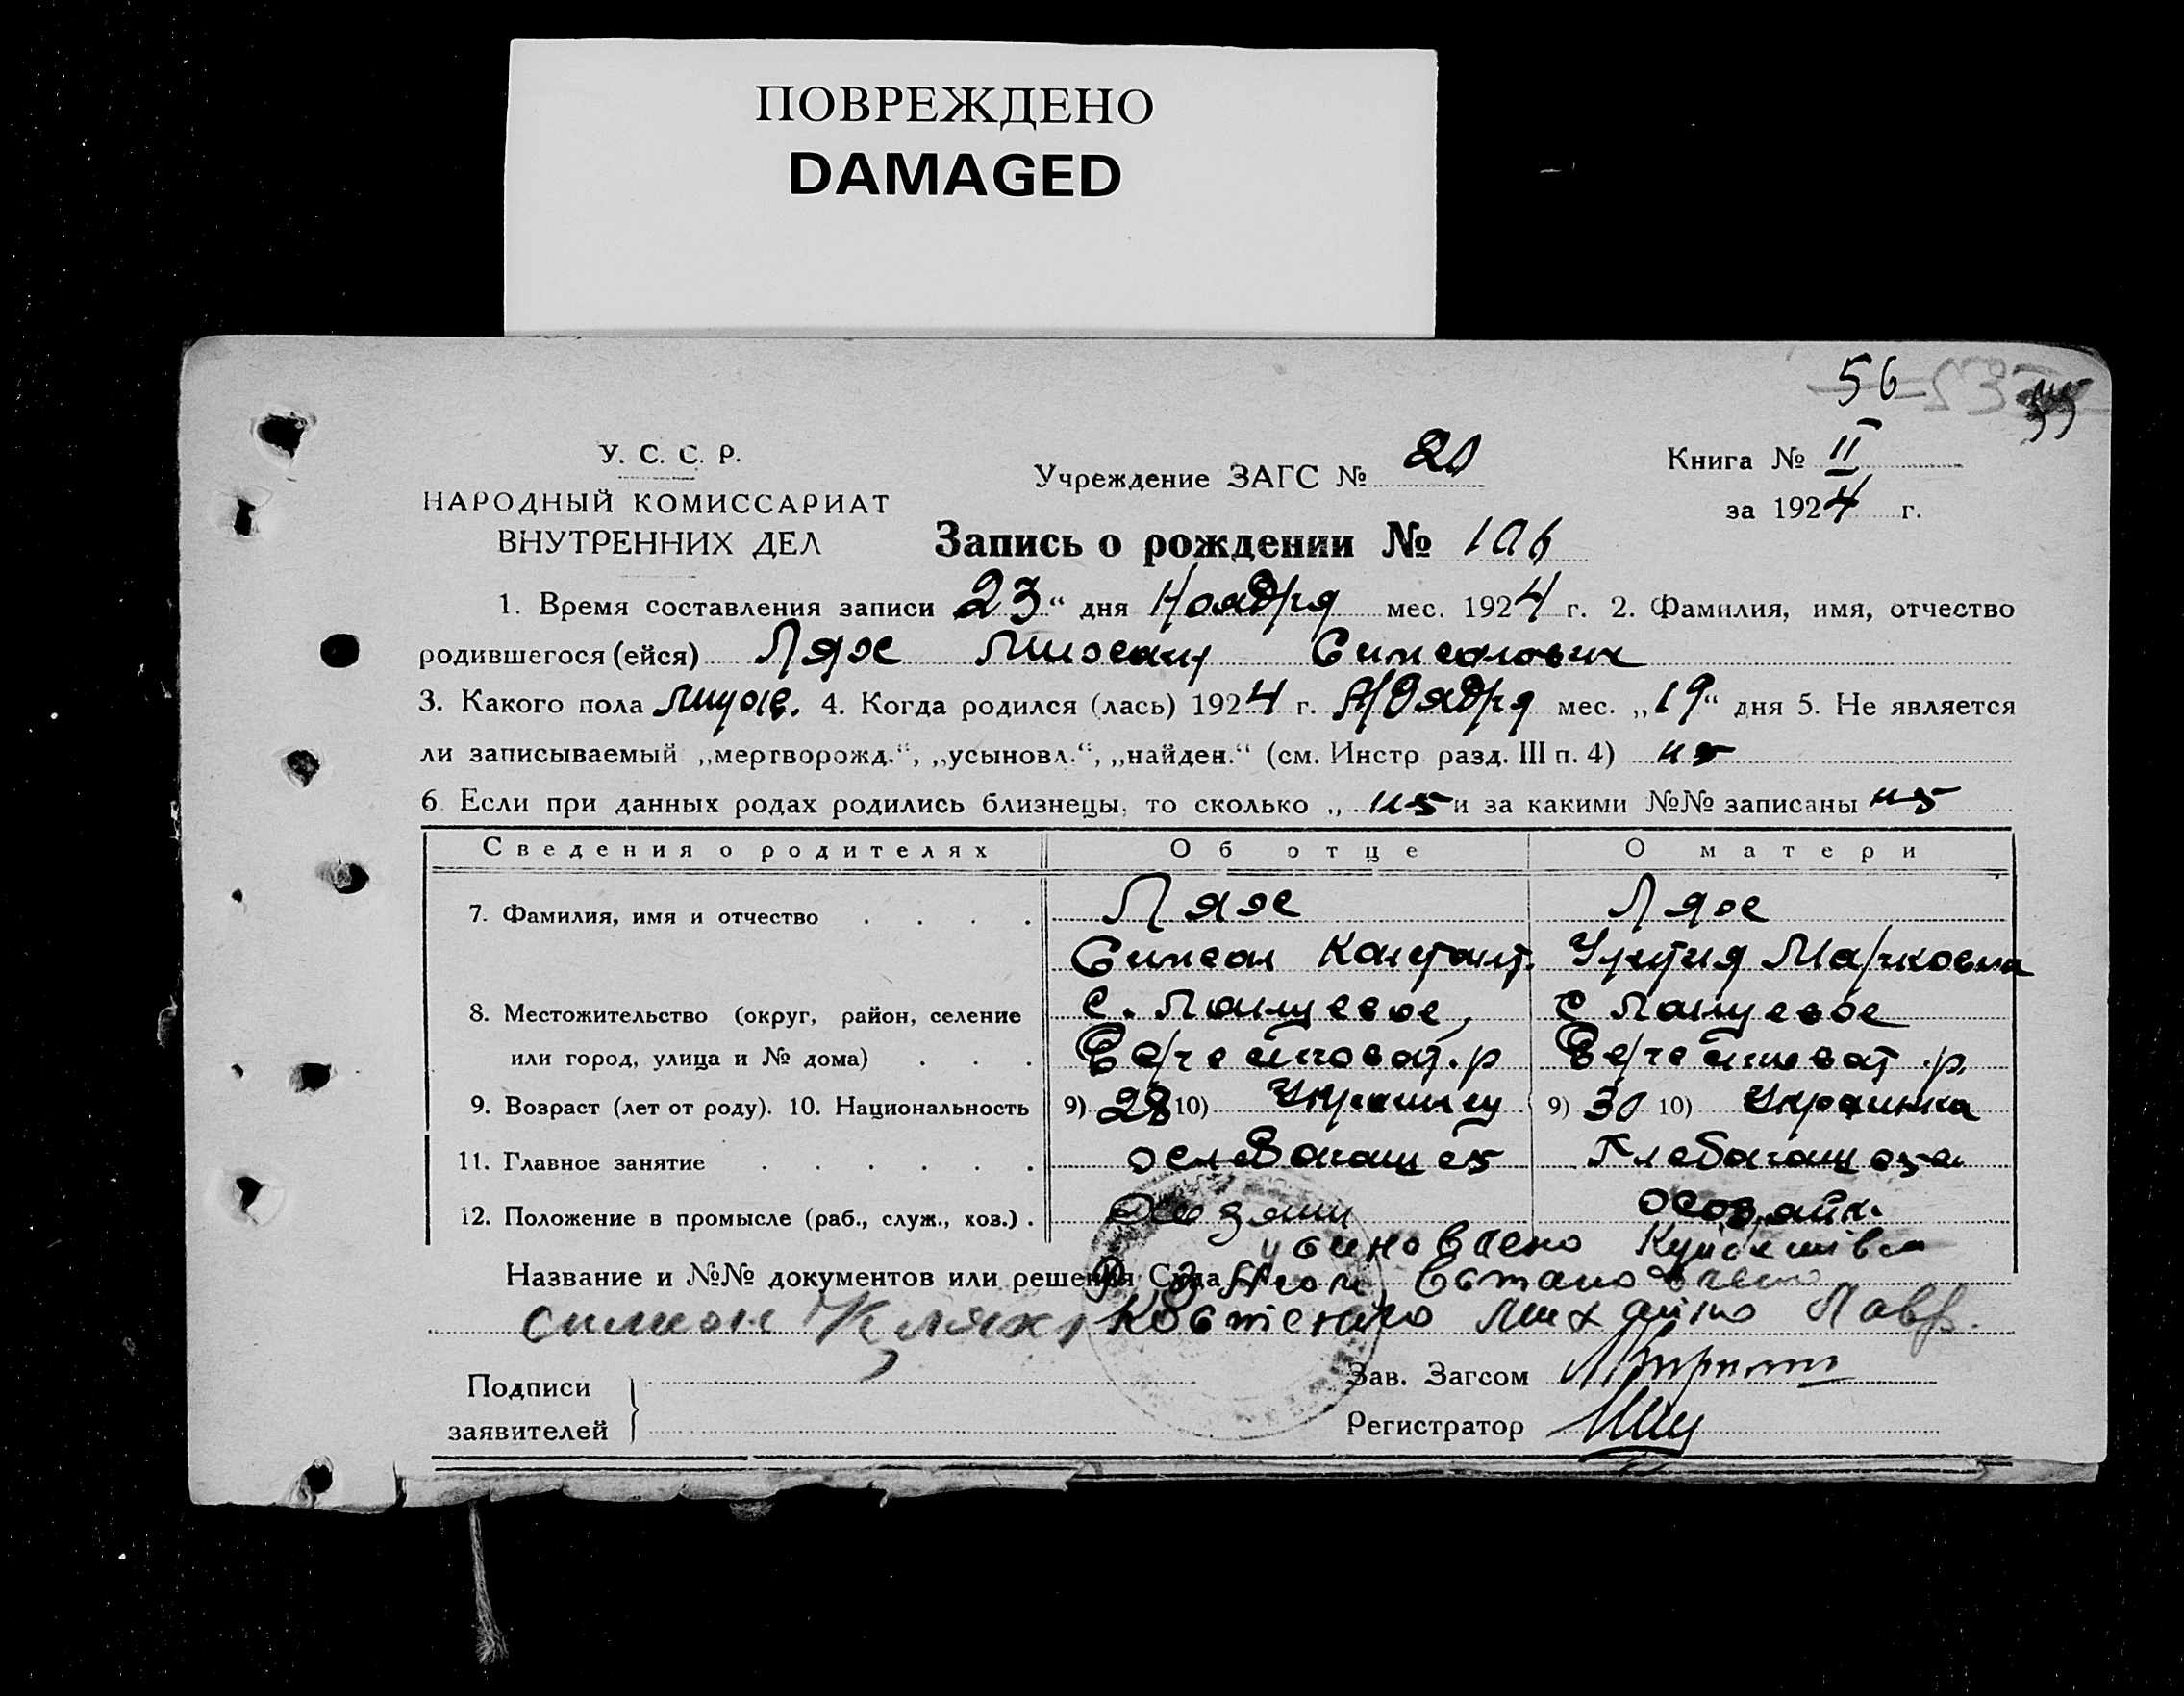 ПОВРЕЖДЕНО
DAMAGED
56
У. С. С. Р.
НАРОДНЫЙ КОМИССАРИАТ
ВНУТРЕННИХ ДЕЛ
Учреждение ЗАГС № 20
Книга № II
за 1924 г.
Запись о рождении № 106
1. Время составления записи 23“ дня Ноября мес. 1924 г. 2. Фамилия, имя, отчество
родившегося (ейся) Лях Михаил Симонович
3. Какого пола мужс. 4. Когда родился (лась) 1924 г. Ноября мес. „19“ дня 5. Не является
ли записываемый „мертворожд.“, „усыновл.“, „найден.“ (см. Инстр. разд. III п. 4) нет
6. Если при данных родах родились близнецы, то сколько „ нет и за какими №№ записаны нет
Сведения о родителях Об отце О матери
7. Фамилия, имя и отчество . . . . Лях Лях
Симон Констант. Устия Марковна
8. Местожительство (округ, район, селение с. Лащевое, с Лащевое
или город, улица и № дома) . . . р р.
9. Возраст (лет от роду). 10. Национальность 9) 28 10) Украинец 9) 30 10) Украинка
11. Главное занятие . . . . . . Хлебопашец
12. Положение в промысле (раб., служ., хоз.) . хозяин хозяйк.
Название и №№ документов или решения Суда
Симон К Лях Костенко Михайло Лавр.
Подписи
заявителей
Зав. Загсом
Регистратор